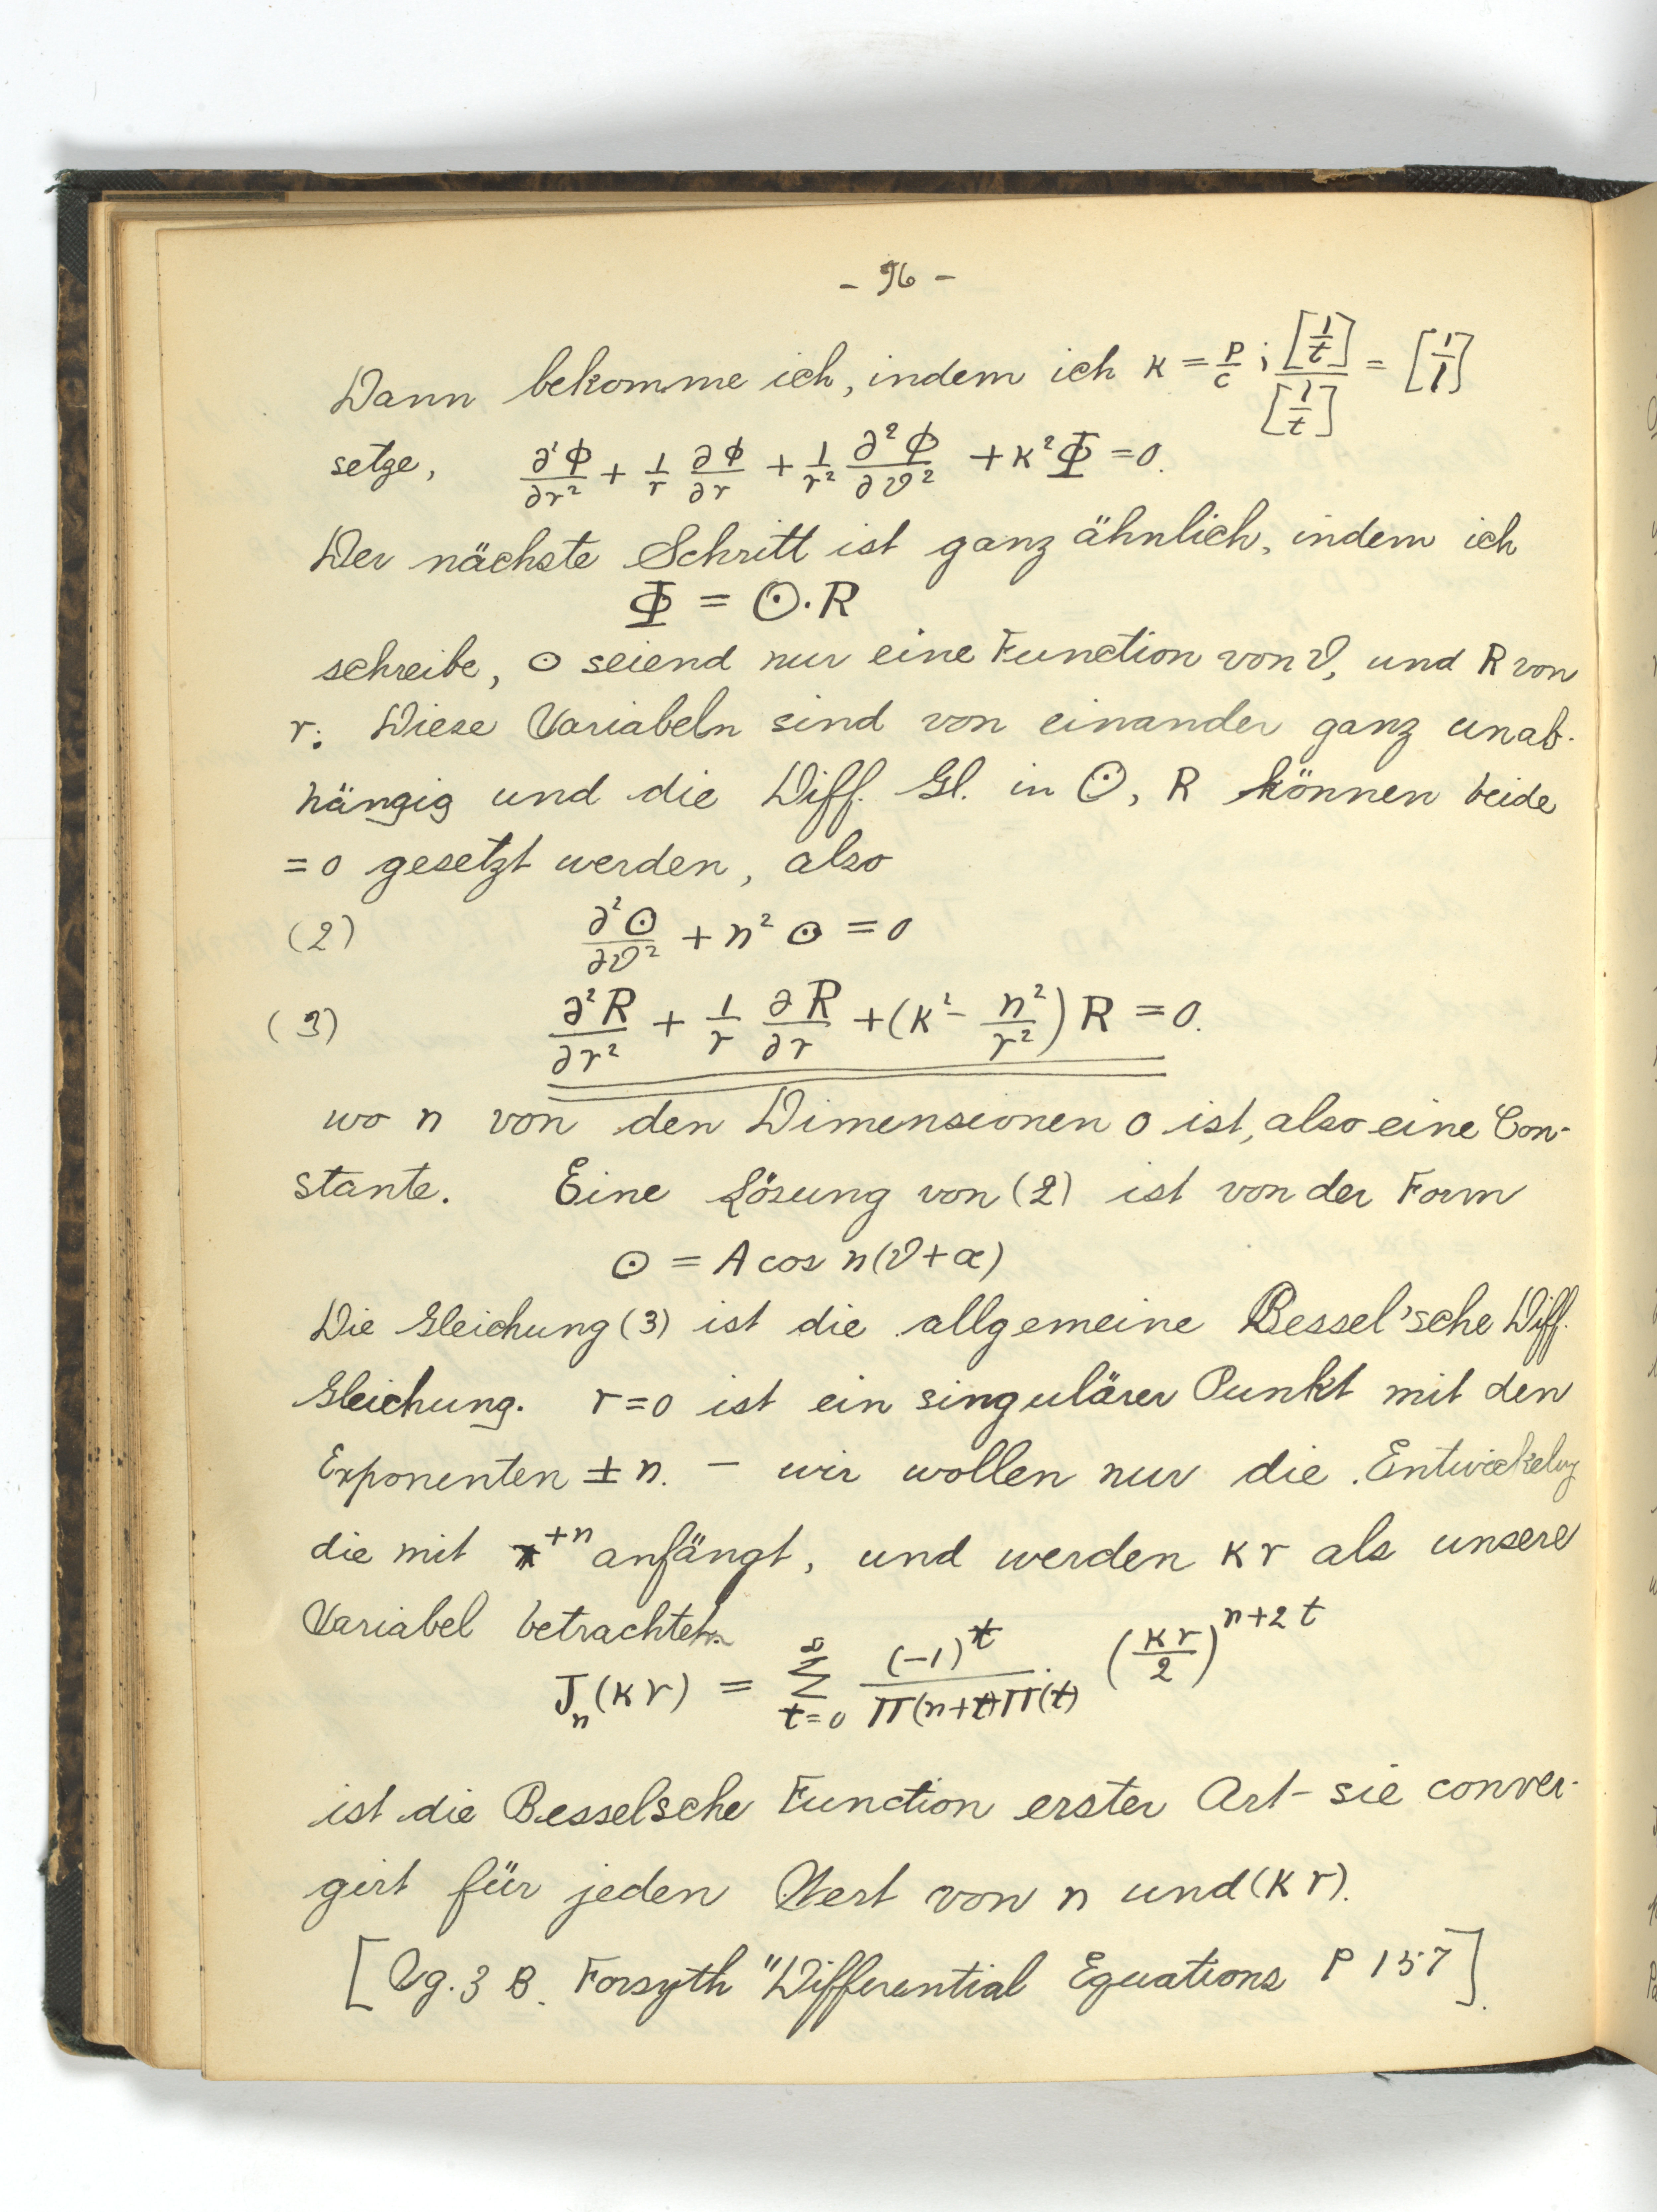 - 96 -
Dann bekomme ich, indem ich κ = p/c ; [1/t]/[1/t] = [1/l]
setze, ∂²Φ/∂r² + 1/r ∂Φ/∂r + 1/r² ∂²Φ/∂ϑ² + κ²Φ = 0.
Der nächste Schritt ist ganz ähnlich, indem ich
Φ = Θ·R
schreibe, Θ seiend nur eine Function von ϑ, und R von
r. Diese Variabeln sind von einander ganz unab-
hängig und die Diff. Gl. in Θ, R können beide
= 0 gesetzt werden, also
(2) ∂²Θ/∂ϑ² + n²Θ = 0
(3) ∂²R/∂r² + 1/r ∂R/∂r + (κ² - n²/r²) R = 0.
wo n von den Dimensionen 0 ist, also eine Con-
stante. Eine Lösung von (2) ist von der Form
Θ = A cos n(ϑ + α)
Die Gleichung (3) ist die allgemeine Bessel'sche Diff.
Gleichung. r = 0 ist ein singulärer Punkt mit den
Exponenten ± n. - wir wollen nur die Entwickelung
die mit r⁺ⁿ anfängt, und werden κr als unsere
Variabel betrachten.
Jₙ(κr) = ∑_{t=0}^{∞} (-1)^t / Π(n+t)Π(t) (κr/2)^{n+2t}
ist die Besselsche Function erster Art - sie conver-
girt für jeden Wert von n und (κr).
[Vg. z B. Forsyth "Differential Equations P 157].